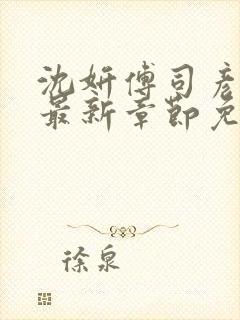 沈妍傅司彦
最新章节免
徐泉